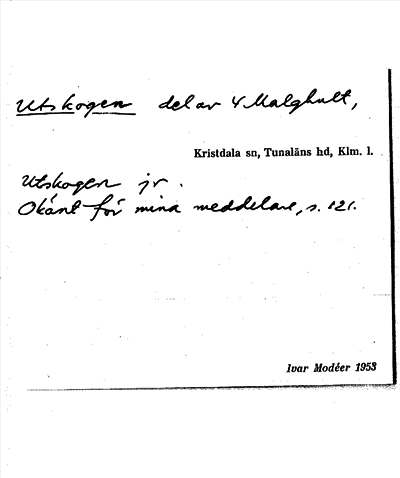 Utskogen del av 4 Malghult,
Kristdala sn, Tunaläns hd, Klm. l.
Utskogen jr.
Okänt för mina meddelare, s. 121.
Ivar Modéer 1953